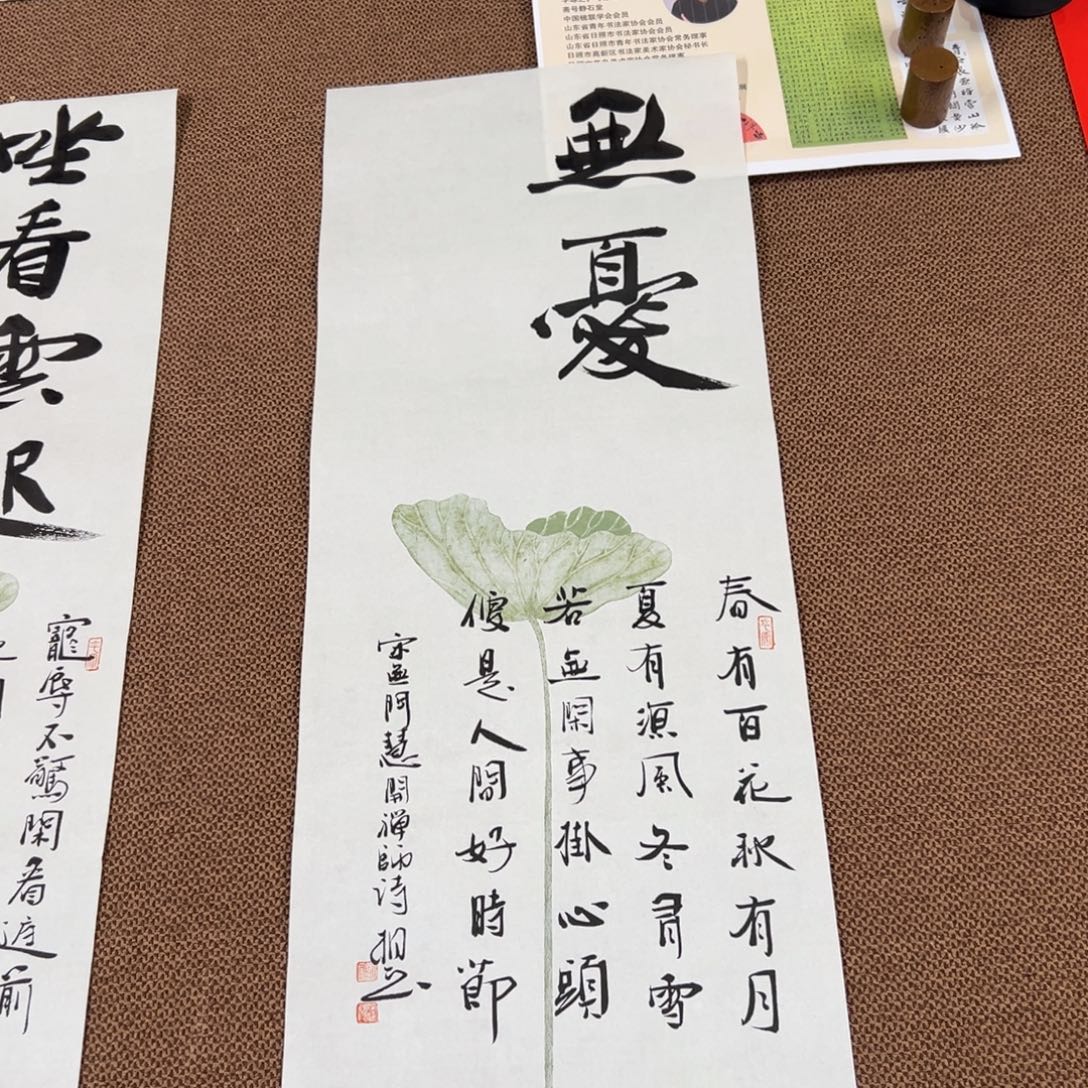 無憂
春有百花秋有月
夏有涼風冬有雪
若無閑事掛心頭
便是人間好時節
宋無門慧開禪師詩
坐看雲
寵辱不驚閑看庭前
斋号静石堂
中国楹联学会会员
山东省青年书法家协会会员
山东省日照市书法家协会会员
山东省日照市青年书法家协会常务理事
日照市高新区书法家美术家协会秘书长